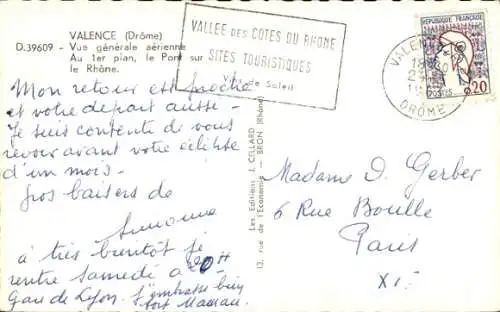 VALENCE (Drôme)
D.39609 - Vue générale aérienne
Au 1er plan, le Pont sur
le Rhône.
VALLÉE DES CÔTES DU RHÔNE
SITES TOURISTIQUES
Vins de Soleil
VALENCE
18
DRÔME
REPUBLIQUE FRANÇAISE
POSTES
0,20
Mon retour est proche
et votre départ aussi -
Je suis contente de vous
revoir avant votre éclipse
d'un mois.
Gros baisers de
Simone
à très bientôt je
rentre Samedi à 20 H
Gare de Lyon. J'embrasse bien
fort Maman.
Les Editions J. CELLARD
13, rue de l'Economie — BRON (Rhône)
Madame D. Gerber
6 Rue Bouille
Paris
XI